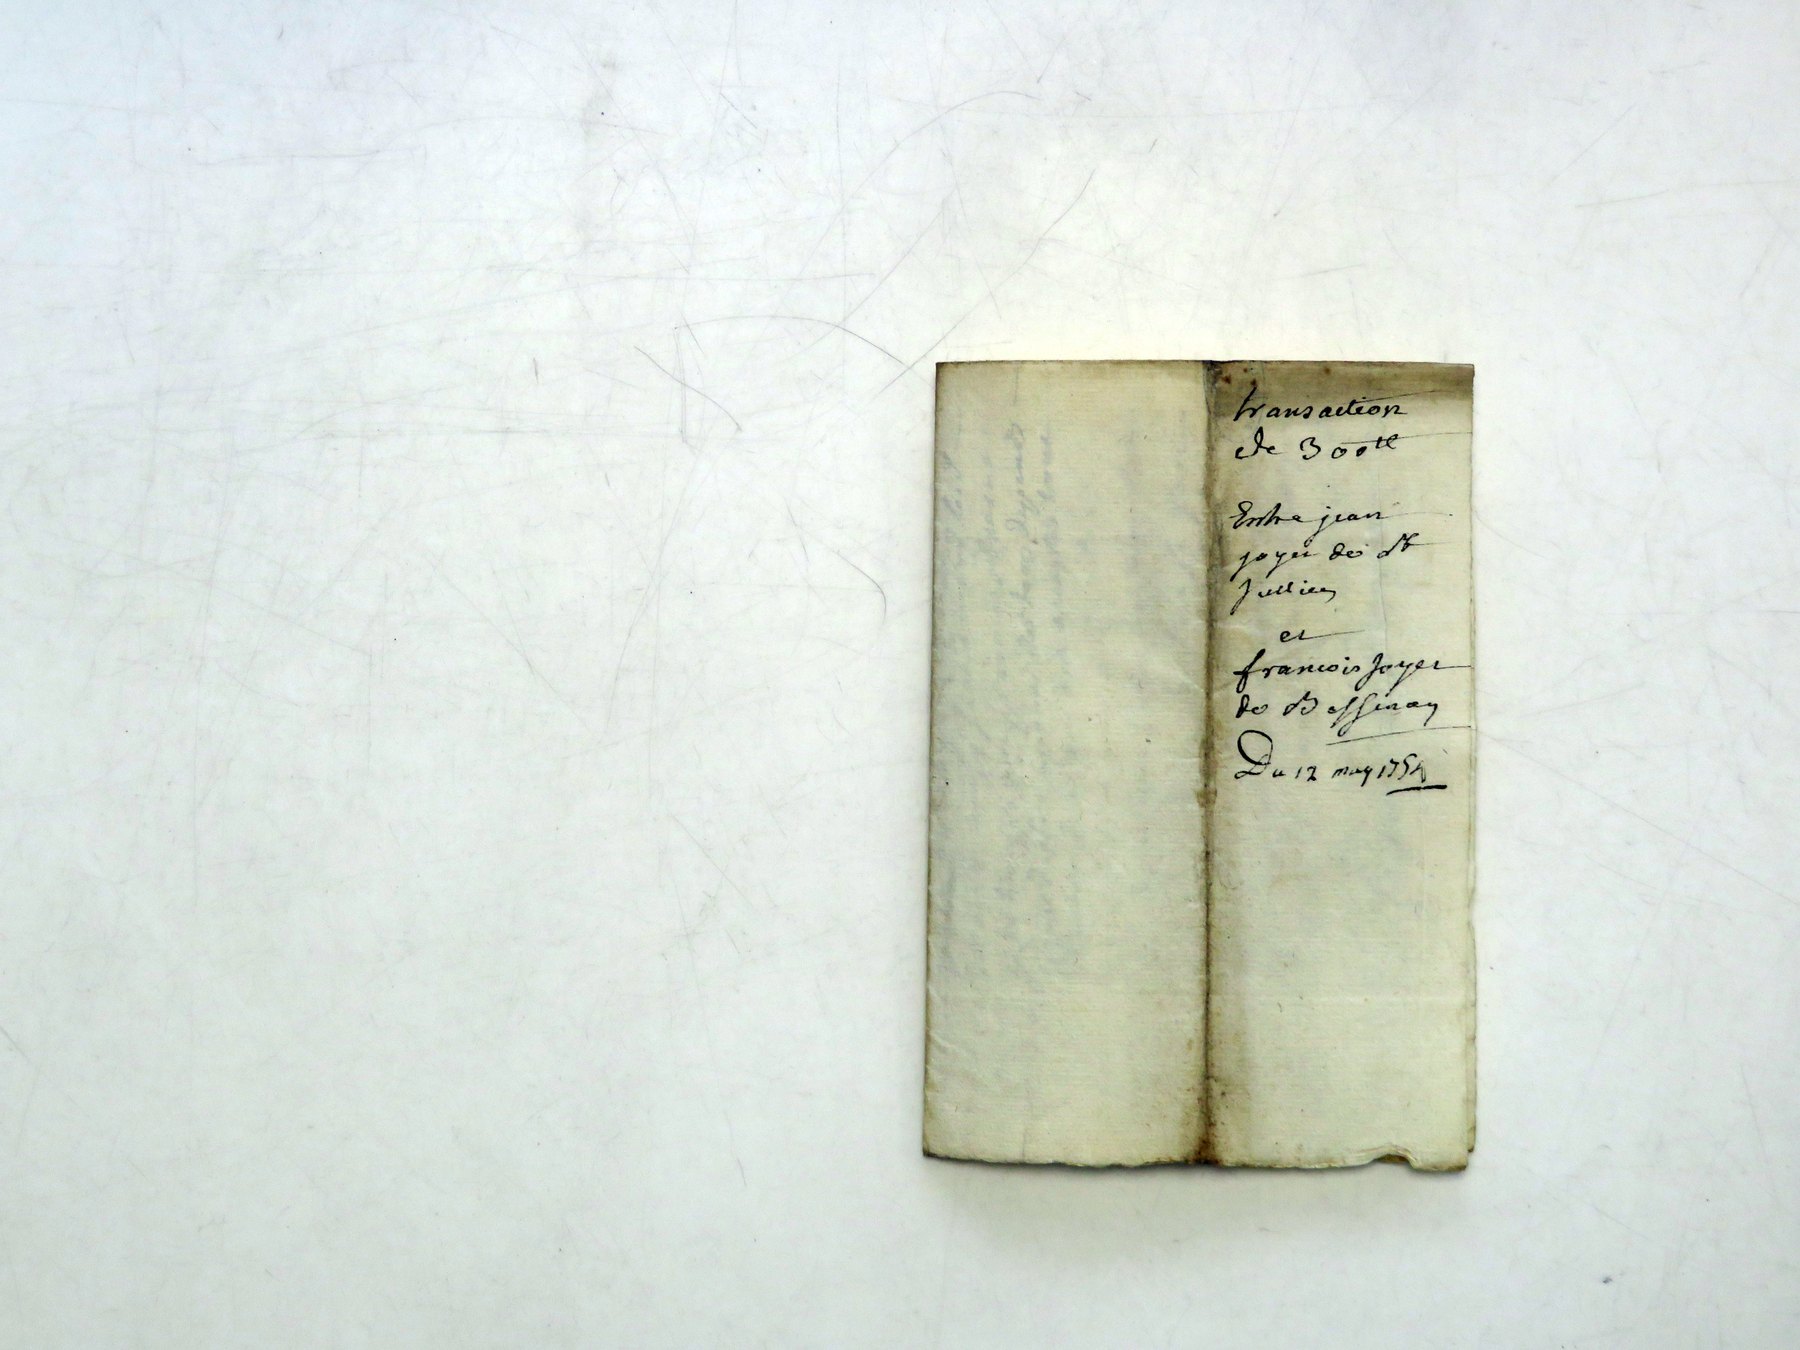 transaction
de 300ll
Entre jean
joyet de St
Jullien
et
francois Joyet
de Bessenay
Du 12 may 1754